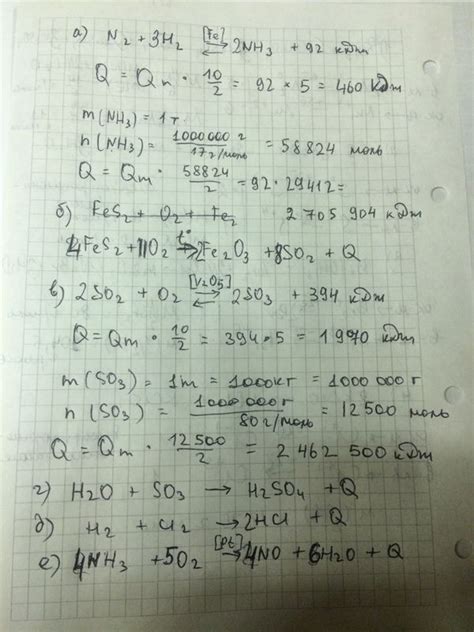 а) N2 + 3H2 [Fe] ⇄ 2NH3 + 92 кДж
Q = Qn · 10/2 = 92 × 5 = 460 кДж
m(NH3) = 1 т
n(NH3) = 1000000 г / 17 г/моль = 58824 моль
Q = Qm · 58824/2 = 92 · 29412 =
б) FeS2 + O2 + Fe2 2 705 904 кДж
4FeS2 + 11O2 t° → 2Fe2O3 + 8SO2 + Q
в) 2SO2 + O2 [V2O5] ⇄ 2SO3 + 394 кДж
Q = Qm · 10/2 = 394 · 5 = 1970 кДж
m(SO3) = 1т = 1000кг = 1000 000 г
n(SO3) = 1000 000г / 80 г/моль = 12 500 моль
Q = Qm · 12 500/2 = 2 462 500 кДж
г) H2O + SO3 → H2SO4 + Q
д) H2 + Cl2 → 2HCl + Q
е) 4NH3 + 5O2 [Pt] → 4NO + 6H2O + Q